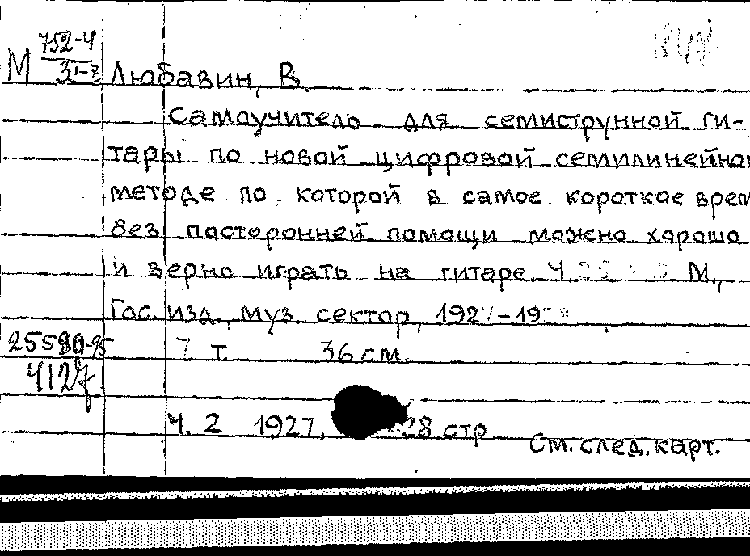 М 752-4
31-7
Любавин, В.
Самоучитель для семиструнной ги-
тары по новой цифровой семилинейной
методе по которой в самое короткое врем
без посторонней помощи можно хорошо
и верно играть на гитаре. Ч. М.,
Гос. изд., муз. сектор, 1927-19
25580-95
7 т. 36 см.
4127
Ч. 2 1927. 28 стр
См. след. карт.